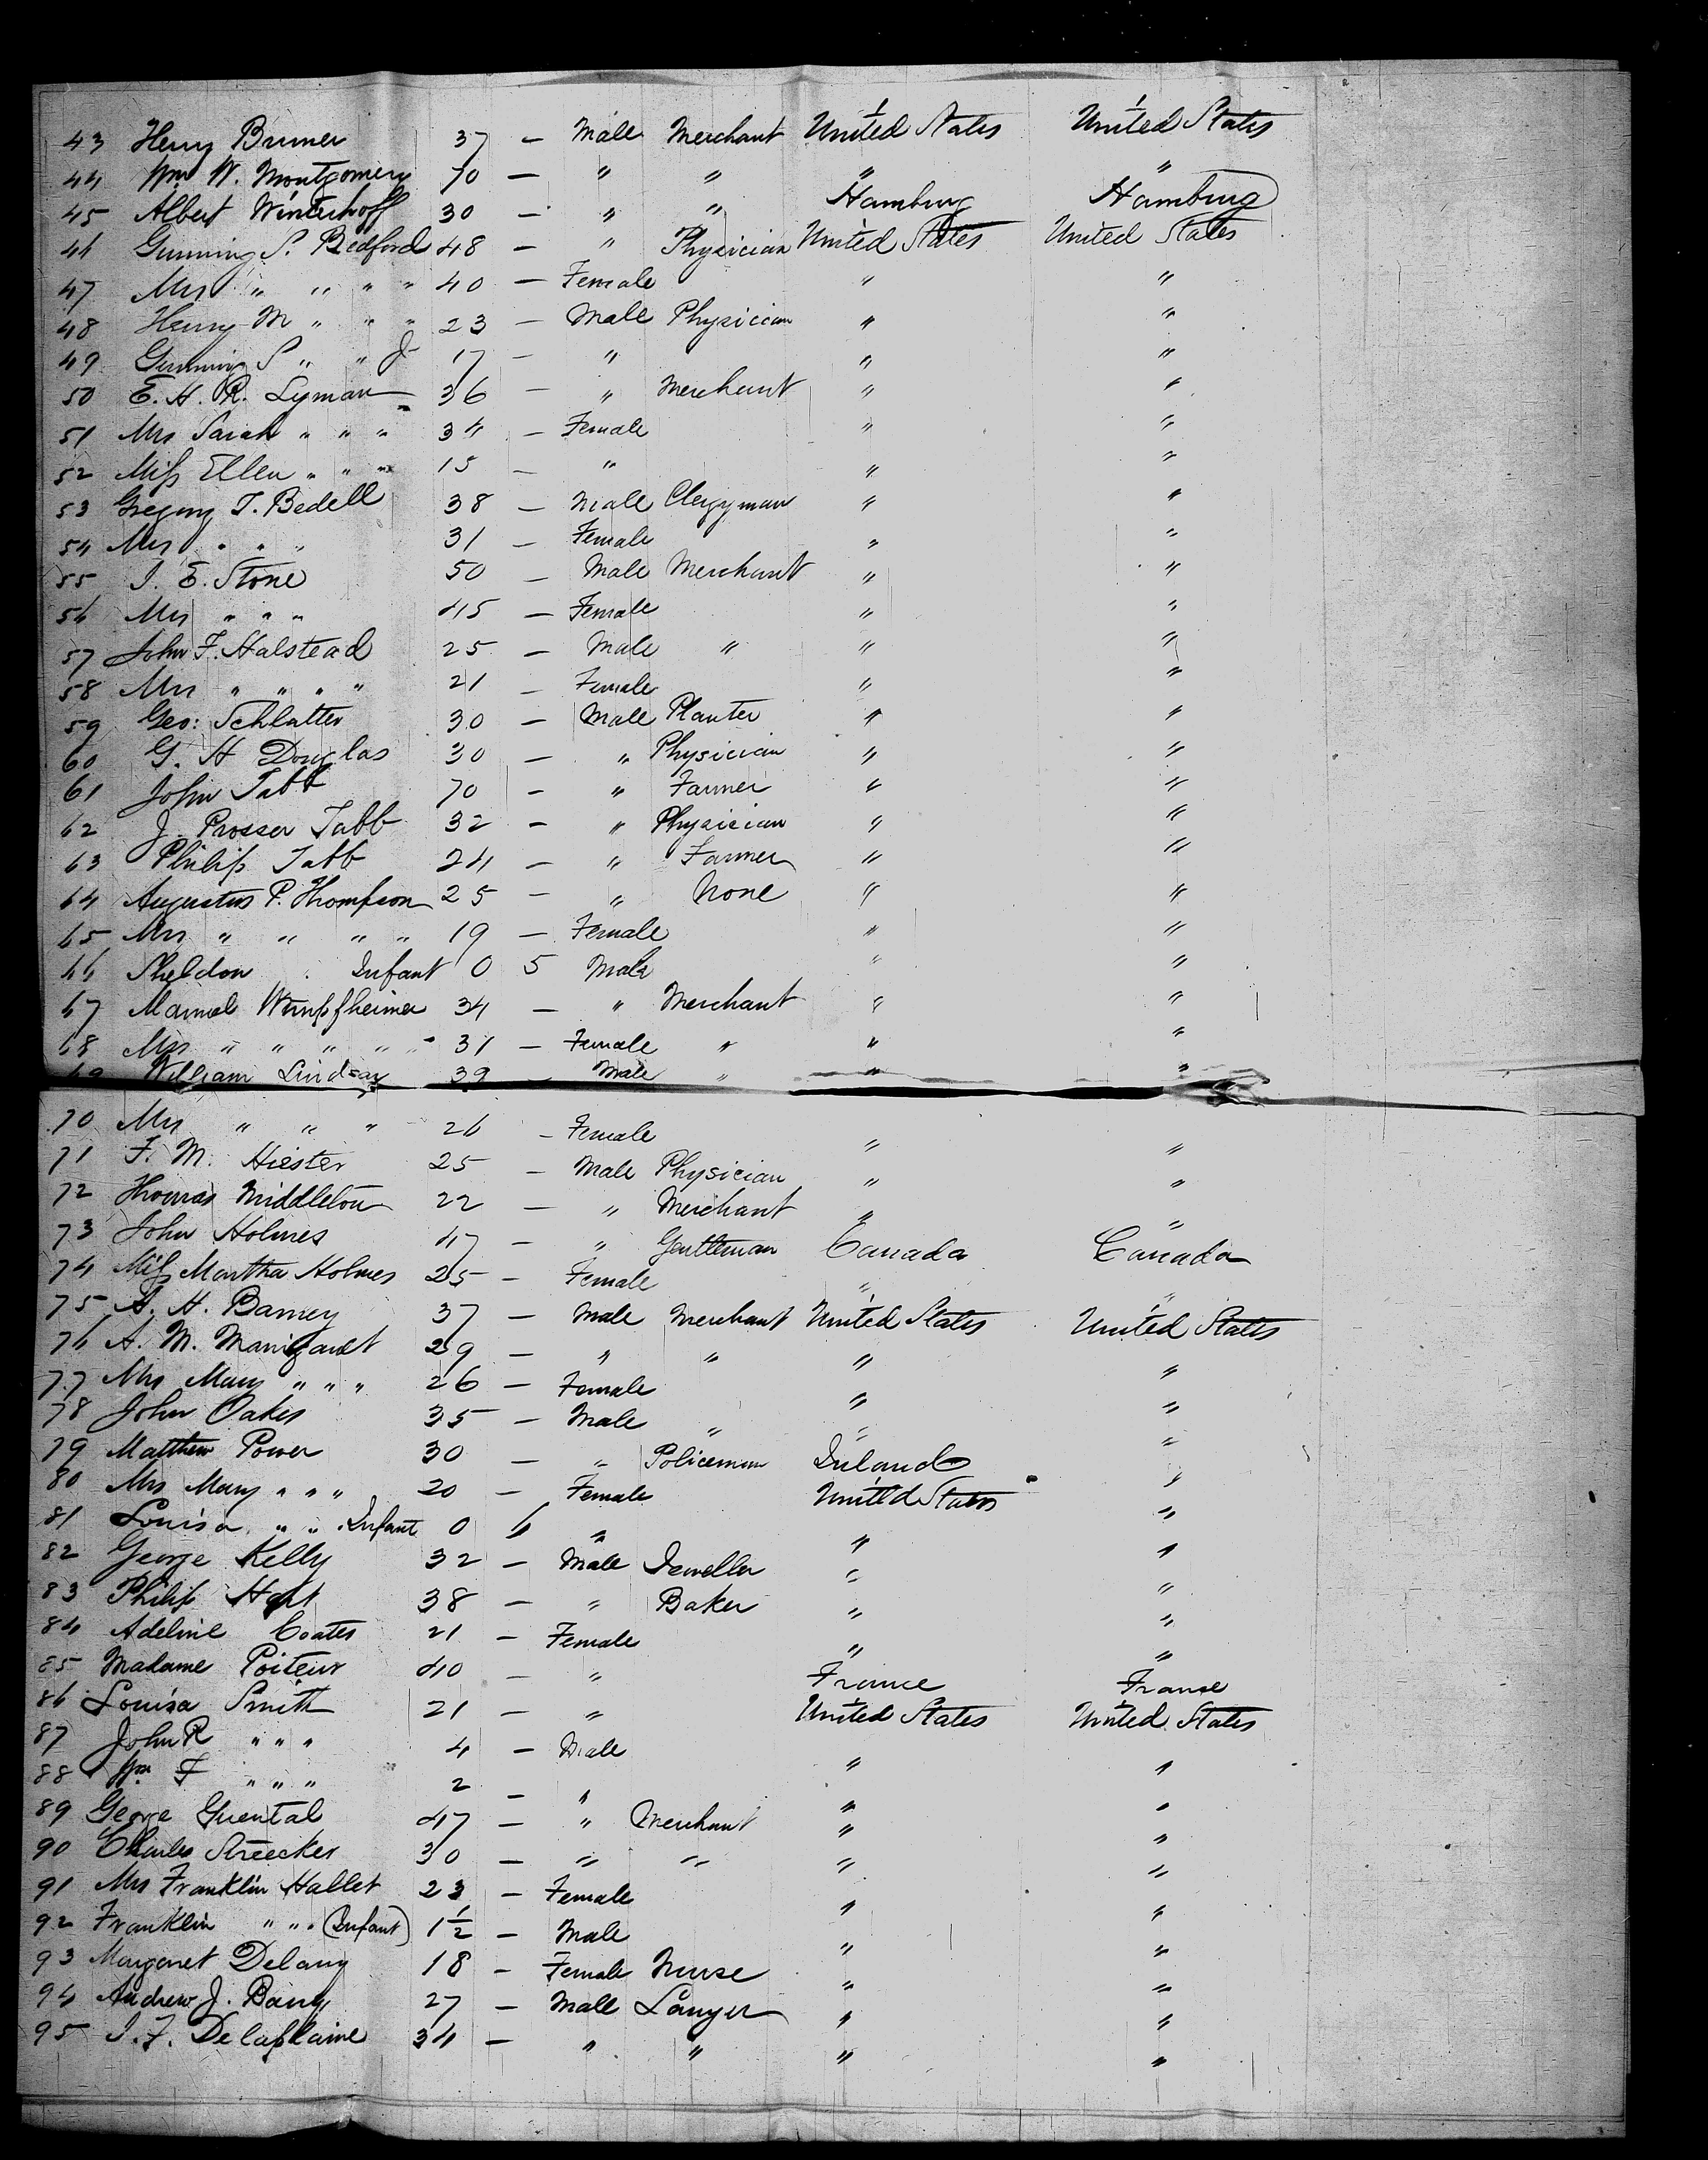 43 Henry Bruner 37 — Male Merchant United States United States
44 Wm W. Montgomery 70 — " " " "
45 Albert Winterhoff 30 — " " Hamburg Hamburg
46 Gunning S. Bedford 48 — " Physician United States United States
47 Mrs " " " " 40 — Female " "
48 Henry M " " " 23 — Male Physician " "
49 Gunning S " " Jr 17 — " " "
50 E. H. R. Lyman 36 — " Merchant " "
51 Mrs Sarah " " " 34 — Female " "
52 Miss Ellen " " " 15 — " " "
53 Gregory T. Bedell 38 — Male Clergyman " "
54 Mrs " " " 31 — Female " "
55 J. E. Stone 50 — Male Merchant " "
56 Mrs " " " 45 — Female " "
57 John F. Halstead 25 — Male " " "
58 Mrs " " " " 21 — Female " "
59 Geo: Schlatter 30 — Male Planter " "
60 G. H Douglas 30 — " Physician " "
61 John Tabb 70 — " Farmer " "
62 J. Prosser Tabb 32 — " Physician " "
63 Philip Tabb 24 — " Farmer " "
64 Augustus P. Thompson 25 — " None " "
65 Mrs " " " " 19 — Female " "
66 Sheldon Infant 0 5 Male " "
67 34 — " Merchant " "
68 Mrs " " " " " 31 — Female " " "
69 William Lindsay 39 — Male " " "
70 Mrs " " " 26 — Female " "
71 F. M. Hiester 25 — Male Physician " "
72 Thomas Middleton 22 — " Merchant " "
73 John Holmes 47 — " Gentleman Canada Canada
74 Miss Martha Holmes 25 — Female " "
75 A. H. Barney 37 — Male Merchant United States United States
76 A. M. Manigault 29 — " " " "
77 Mrs Mary " " " 26 — Female " "
78 John Oakes 35 — Male " " "
79 Matthew Power 30 — " Policeman Ireland "
80 Mrs Mary " " " 20 — Female United States "
81 Louisa " " Infant 0 6 " " "
82 George Kelly 32 — Male Jeweller " "
83 Philip Hart 38 — " Baker " "
84 Adeline Coates 21 — Female " "
85 Madame Poiteur 40 — " France France
86 Louisa Smith 21 — " United States United States
87 John R " " " 4 — Male " "
88 Wm F " " " 2 — " " "
89 George Guental 47 — " Merchant " "
90 Charles Streecker 30 — " " " "
91 Mrs Franklin Hallet 23 — Female " "
92 Franklin " " " (Infant) 1½ — Male " "
93 Margaret Delany 18 — Female Nurse " "
94 Andrew J. 27 — Male Lawyer " "
95 J. F. Delaplaine 34 — " " " "